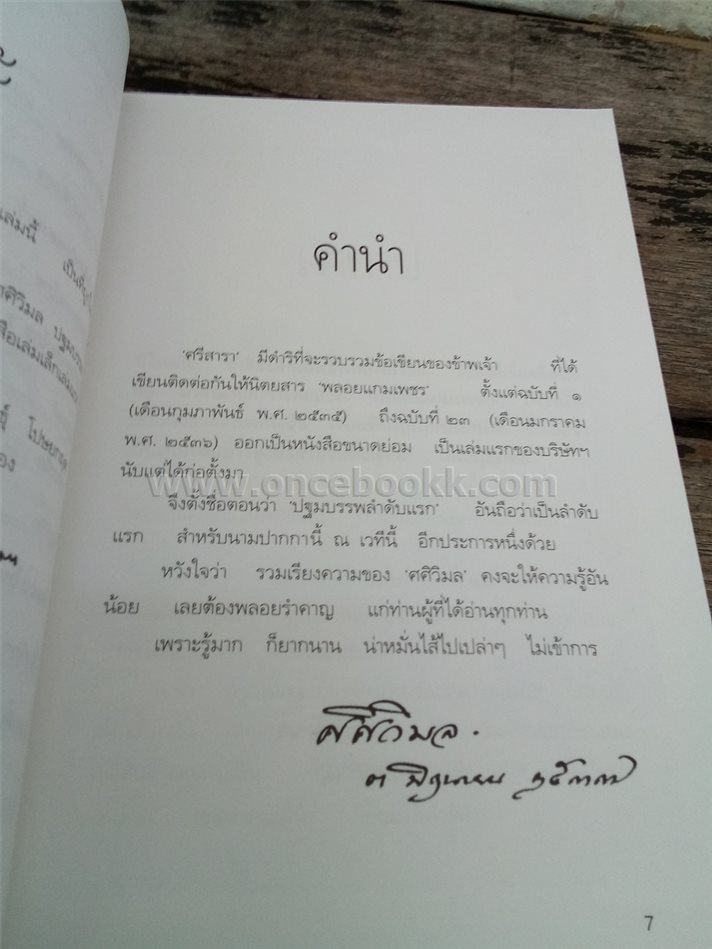 ล่มนี้ เป็น
ศิวิมล ปฐมบรร
คำนำ
'ศรีสารา' มีดำริที่จะรวบรวมข้อเขียนของข้าพเจ้า ที่ได้
เขียนติดต่อกันให้นิตยสาร 'พลอยแกมเพชร' ตั้งแต่ฉบับที่ ๑
(เดือนกุมภาพันธ์ พ.ศ. ๒๕๓๕) ถึงฉบับที่ ๒๓ (เดือนมกราคม
พ.ศ. ๒๕๓๖) ออกเป็นหนังสือขนาดย่อม เป็นเล่มแรกของบริษัทฯ
นับแต่ได้ก่อตั้งมา
www.oncebookk.com
จึงตั้งชื่อตอนว่า 'ปฐมบรรพลำดับแรก' อันถือว่าเป็นลำดับ
แรก สำหรับนามปากกานี้ ณ เวทีนี้ อีกประการหนึ่งด้วย
หวังใจว่า รวมเรียงความของ 'ศศิวิมล' คงจะให้ความรู้อัน
น้อย เลยต้องพลอยรำคาญ แก่ท่านผู้ที่ได้อ่านทุกท่าน
เพราะรู้มาก ก็ยากนาน น่าหมั่นไส้ไปเปล่าๆ ไม่เข้าการ
ศศิวิมล.
๓ มิถุนายน ๒๕๓๗
7